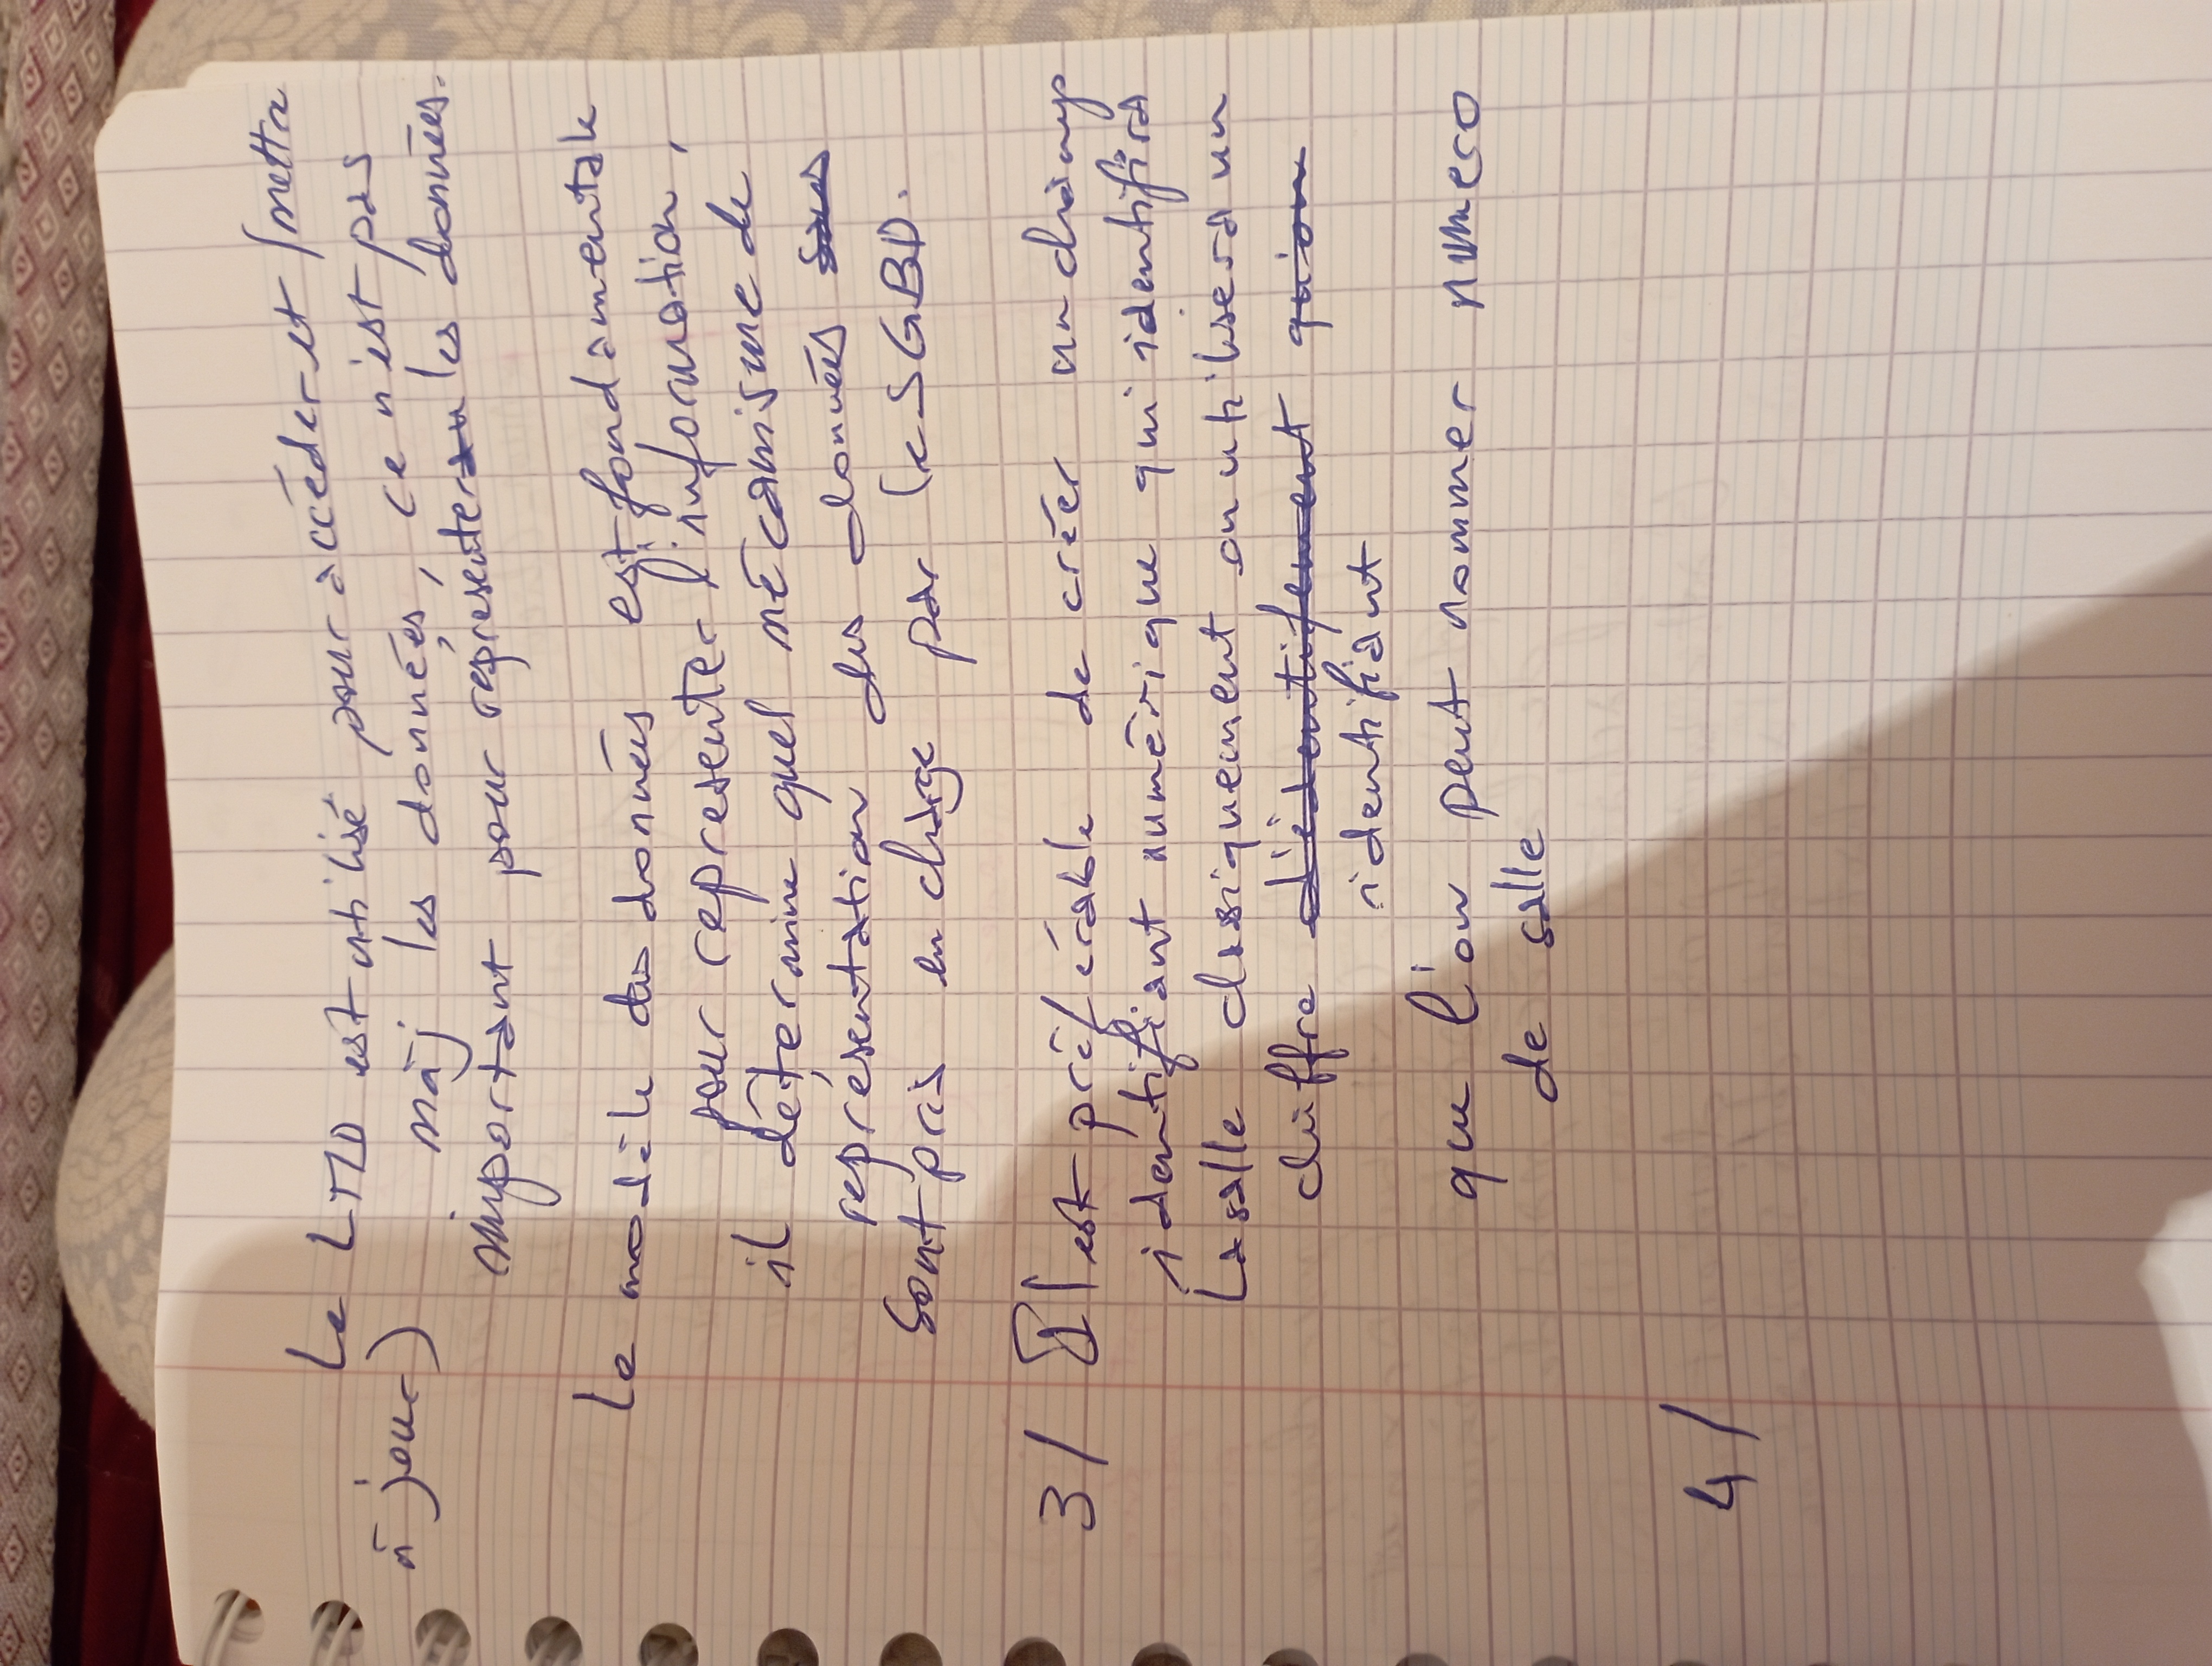 Le LMD est utilisé pour accéder et (mettre
à jour) màj les données, ce n'est pas
important pour représenter les données.
Le modèle des données est fondamentale
pour representer l'information,
il détermine quel mécanisme de
représentation des données sous
sont pris en charge par le SGBD.
3/ Il est préférable de créer un champs
identifiant numérique qui identifira
la salle classiquement on utilisera un
chiffre d'identifement qu'on
identifiant
que l'on peut nommer numero
de salle
4/